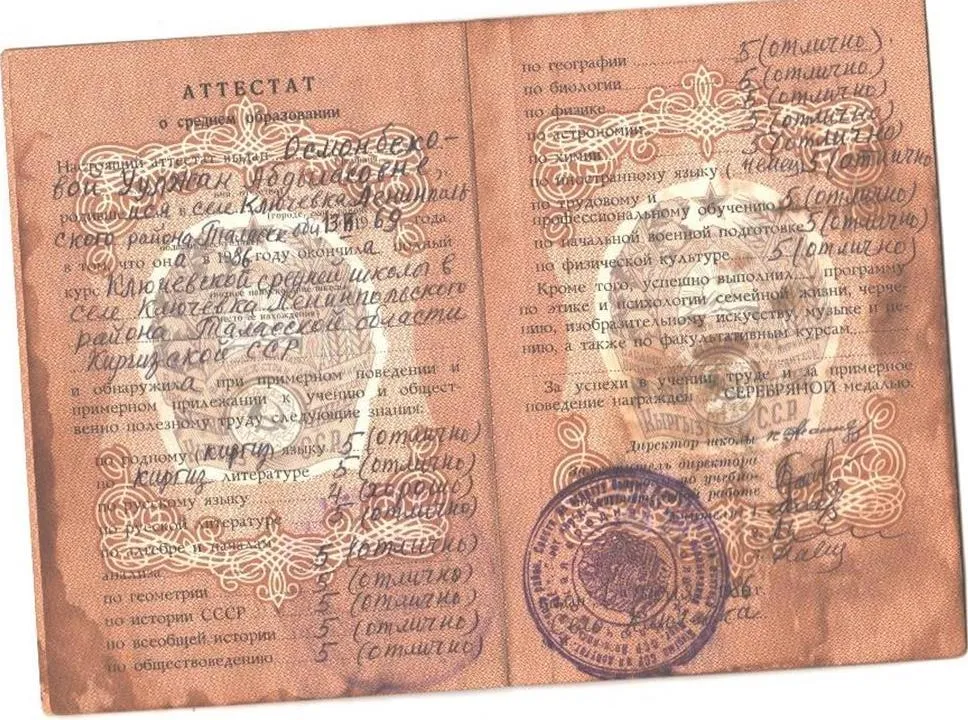 АТТЕСТАТ
о среднем образовании
Настоящий аттестат выдан Осмонбеко-
вой Уулжан Абдымаовне,
родившейся в селе Ключевка Ленинполь
ского района Таласской 13 1969 года
в том, что она в 1986 году окончила полный
курс Ключевской средней школы в
селе Ключевка Ленинпольского
района Таласской области
Киргизской ССР
и обнаружила при примерном поведении и
примерном прилежании к учению и общест-
венно полезному труду следующие знания:
по родному (киргиз) языку 5 (отлично)
по киргиз литературе 5 (отлично)
по русскому языку 4 (хорошо)
по русской литературе 5 (отлично)
по алгебре и началам
анализа 5 (отлично)
по геометрии 5 (отлично)
по истории СССР 5 (отлично)
по всеобщей истории 5 (отлично)
по обществоведению 5 (отлично)
по географии 5 (отлично)
по биологии 5 (отлично)
по физике 5 (отлично)
по астрономии 5 (отлично)
по химии 5 (отлично)
по иностранному языку (немец 5 (отлично
по трудовому и
профессиональному обучению 5 (отлично)
по начальной военной подготовке 5 (отлично)
по физической культуре 5 (отлично)
Кроме того, успешно выполнил программу
по этике и психологии семейной жизни, черче-
нию, изобразительному искусству, музыке и пе-
нию, а также по факультативным курсам
За успехи в учении, труде и за примерное
поведение награжден СЕРЕБРЯНОЙ медалью.
Директор школы
Заместитель директора
по учебно-
работе